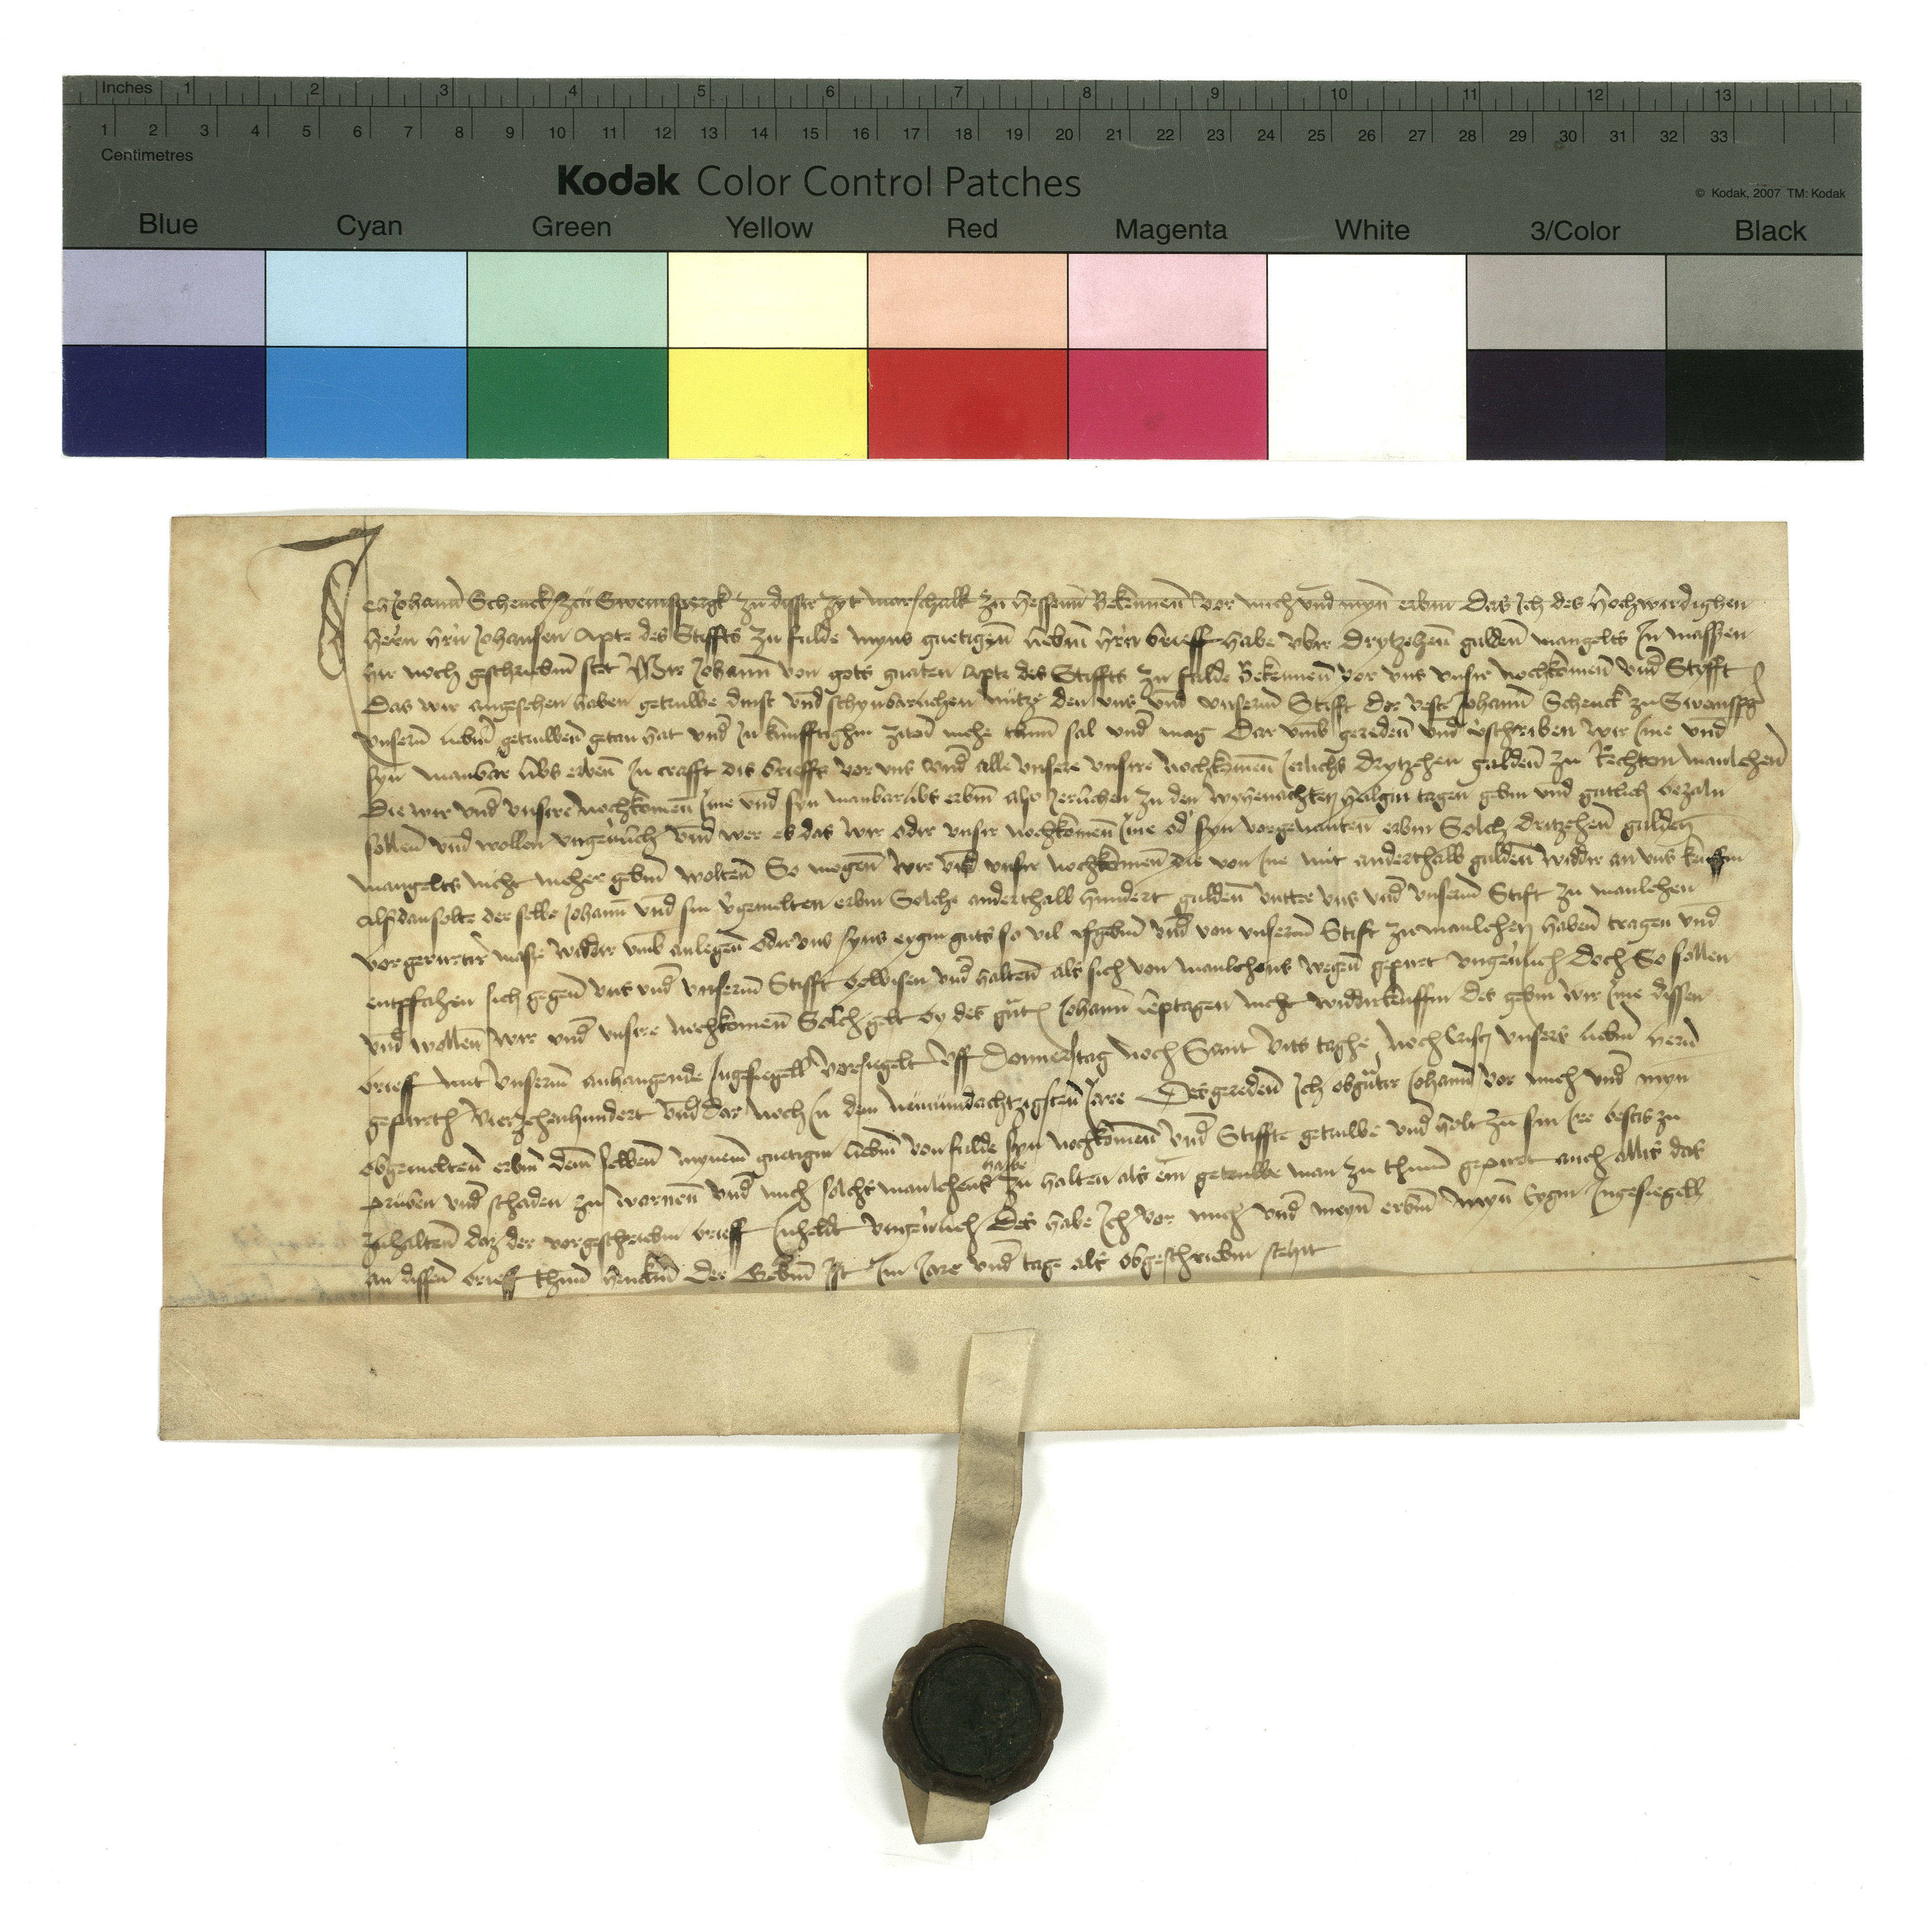 Inches 1 2 3 4 5 6 7 8 9 10 11 12 13
1 2 3 4 5 6 7 8 9 10 11 12 13 14 15 16 17 18 19 20 21 22 23 24 25 26 27 28 29 30 31 32 33
Centimetres
Kodak Color Control Patches
© Kodak, 2007 TM: Kodak
Blue Cyan Green Yellow Red Magenta White 3/Color Black
Ich Johann Schenck zcu Sweinspergk zu disser zyt marschalk zu hessenn Bekennenn vor mich vnd myn erbin Das Ich des hochwirdighen
hern hern Johansen Apte des Stiffts zu fulde myns gnetigenn liebin hern brieff habe vbir drytzehenn guldenn mangelts In massen
hir noch geschriebin stet Wir Johann von gots gnaten Apte des Stiffts zu fulde Bekennenn vor vns vnsir nochkomenn vnd Stifft
Das wir angesehen haben getruwe dinst vnd schynbarlichen nutze den vns vnd vnserm Stifft der veste Johann Schenck zu Sweinspg
vnserm liebin getruwenn getan hat vnd In kunfftighin ziten mehe thun sal vnd mag Dar vmb geredenn vnd vschriben wir Ime vnd
syn manbar libs erbenn In crafft dis brieffs vor vns vnd alle vnsere vnsire nochkomenn Jerlichs drytzehen guldenn zu Rechtem manlehenn
Die wir vnd vnsire nochkomenn Ime vnd syn manbar libs erbin also Jerlichen zu den wyhenachten heilgin tagen gebin vnd gutlich bezaln
sollenn vnd wollen vngeuerlich vnd wer es das wir odir vnsir nochkomenn Ime od syn vorgenanten erbin Solch dritzehenn gulden
mangelts nicht meher gebin woltenn So mogenn wir vnd vnsir nochkomenn die von Ine mit anderthalb guldenn widdir an vns kauffin
Alsdan solte der selbe Johann vnd sin vgemelten erbin Solche anderthalb hundert guldenn vntter vns vnd vnserm Stift zu manlehen
vorgerurtir masze widdir vmb anlegenn odir vns syns eygin guts so vil vfgebin vnd von vnserm Stift zu manlehen habenn tragen vnd
entpfahen sich gegenn vns vnd vnserm Stifft bewisen vnd haltenn als sich von manlehens wegenn geburt vngeuerlich Doch So sollen
vnd wollenn wir vnd vnsire nochkomenn Solch gelt by des gnten Johann leptagen nicht widdirkauffin Des gebin wir Ime dissen
brieff mit vnserm anhangende Ingesiegell vorsiegelt vff Donnerstag noch Sant vits taghe noch Crist vnsers liebin hern
geburth vierzehenhundert vnd dar noch In dem nununddachtzigsten Jare Des geredenn Ich obgntir Johann vor mich vnd myn
obgemeltenn erbin dem selbenn mynem gnetigin liebin von fulde syn nochkomenn vnd Stiffte getruwe vnd holt zu sin Ire bestis zu
pruben vnd schaden zu warnenn vnd mich solchs manlehens halbe zu halten als ein getruwe man zu thun geburt auch allis das
zuhaltenn daz der vorgeschriebin brieff Inheldt vngeuerlich Des habe Ich vor mich vnd myn erbin myn Eygin Ingesiegell
an dissen brieff thun hencken Der Gebin Ist Im Jare vnd tage als obgeschriebin stehit